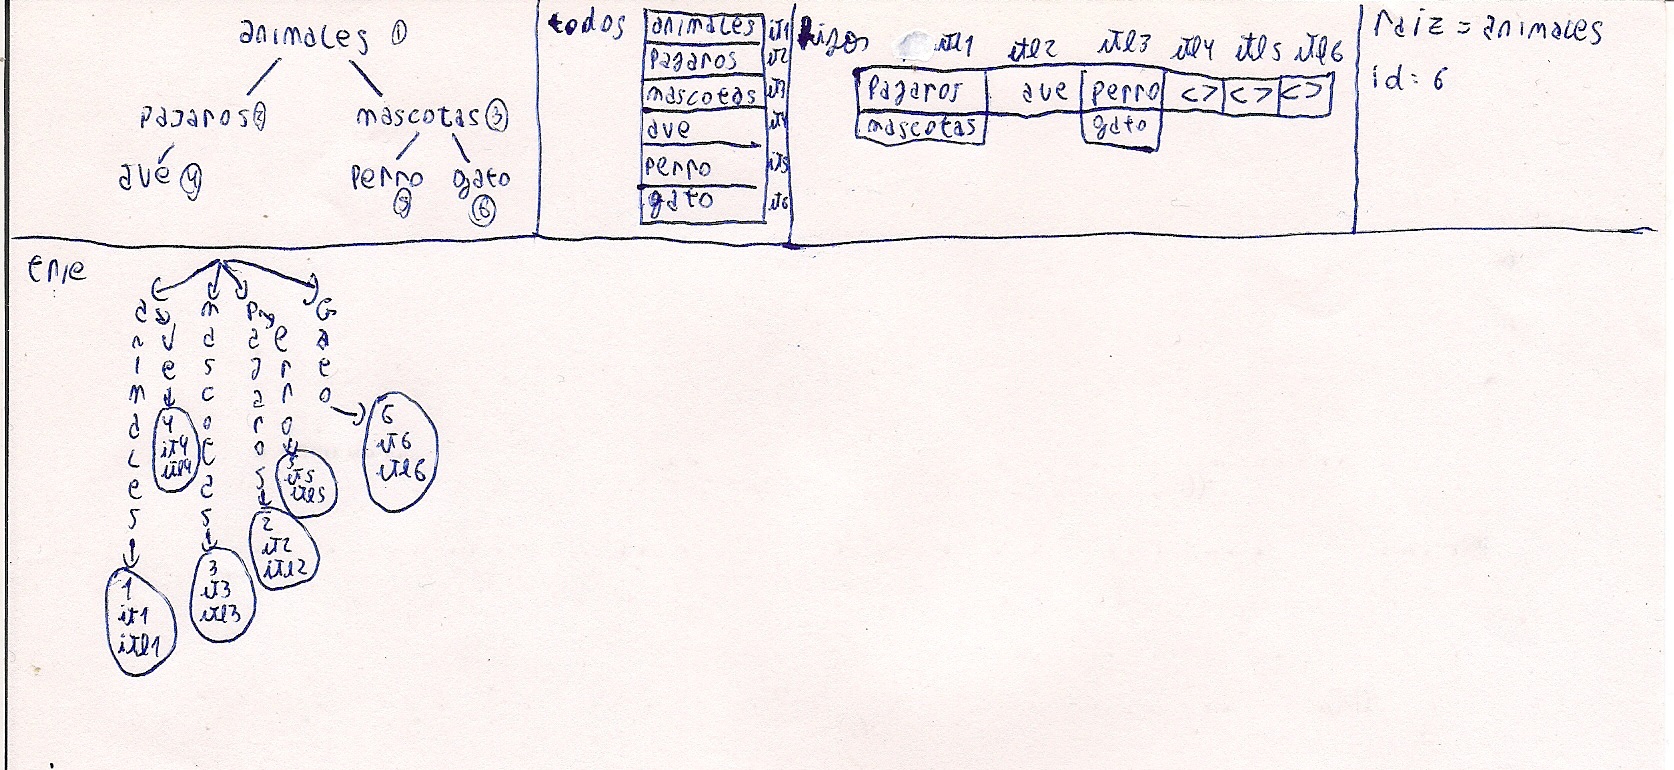 animales ①
pajaros ②
mascotas ③
ave ④
perro ⑤
gato ⑥
todos
animales it1
pajaros it2
mascotas it3
ave it4
perro it5
gato it6
hijos
itl1 itl2 itl3 itl4 itl5 itl6
pajaros ave perro <> <> <>
mascotas gato
raiz = animales
id: 6
animales
1
it1
itl1
ve
4
it4
itl4
mascotas
3
it3
itl3
pajaros
2
it2
itl2
erro
5
it5
itl5
Gato
6
it6
itl6